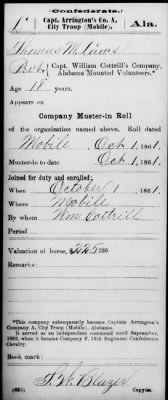 (Confederate.)
Capt. Arrington's Co. A,
City Troop (Mobile).
Ala.
Capt. William Cottrill's Company,
Alabama Mounted Volunteers.*
Age 18 years.
Appears on
Company Muster-in Roll
of the organization named above. Roll dated
Mobile Oct 1, 1861.
Muster-in to date Oct 1, 1861.
Joined for duty and enrolled:
When October 1, 1861.
Where Mobile
By whom Wm Cottrill
Period
Valuation of horse, 225 100
Remarks:
*This company subsequently became Captain Arrington's
Company A, City Troop (Mobile), Alabama.
It served as an independent command until September,
1862, when it became Company F, 15th Regiment Confederate
Cavalry.
Book mark:
(655)
Copyist.